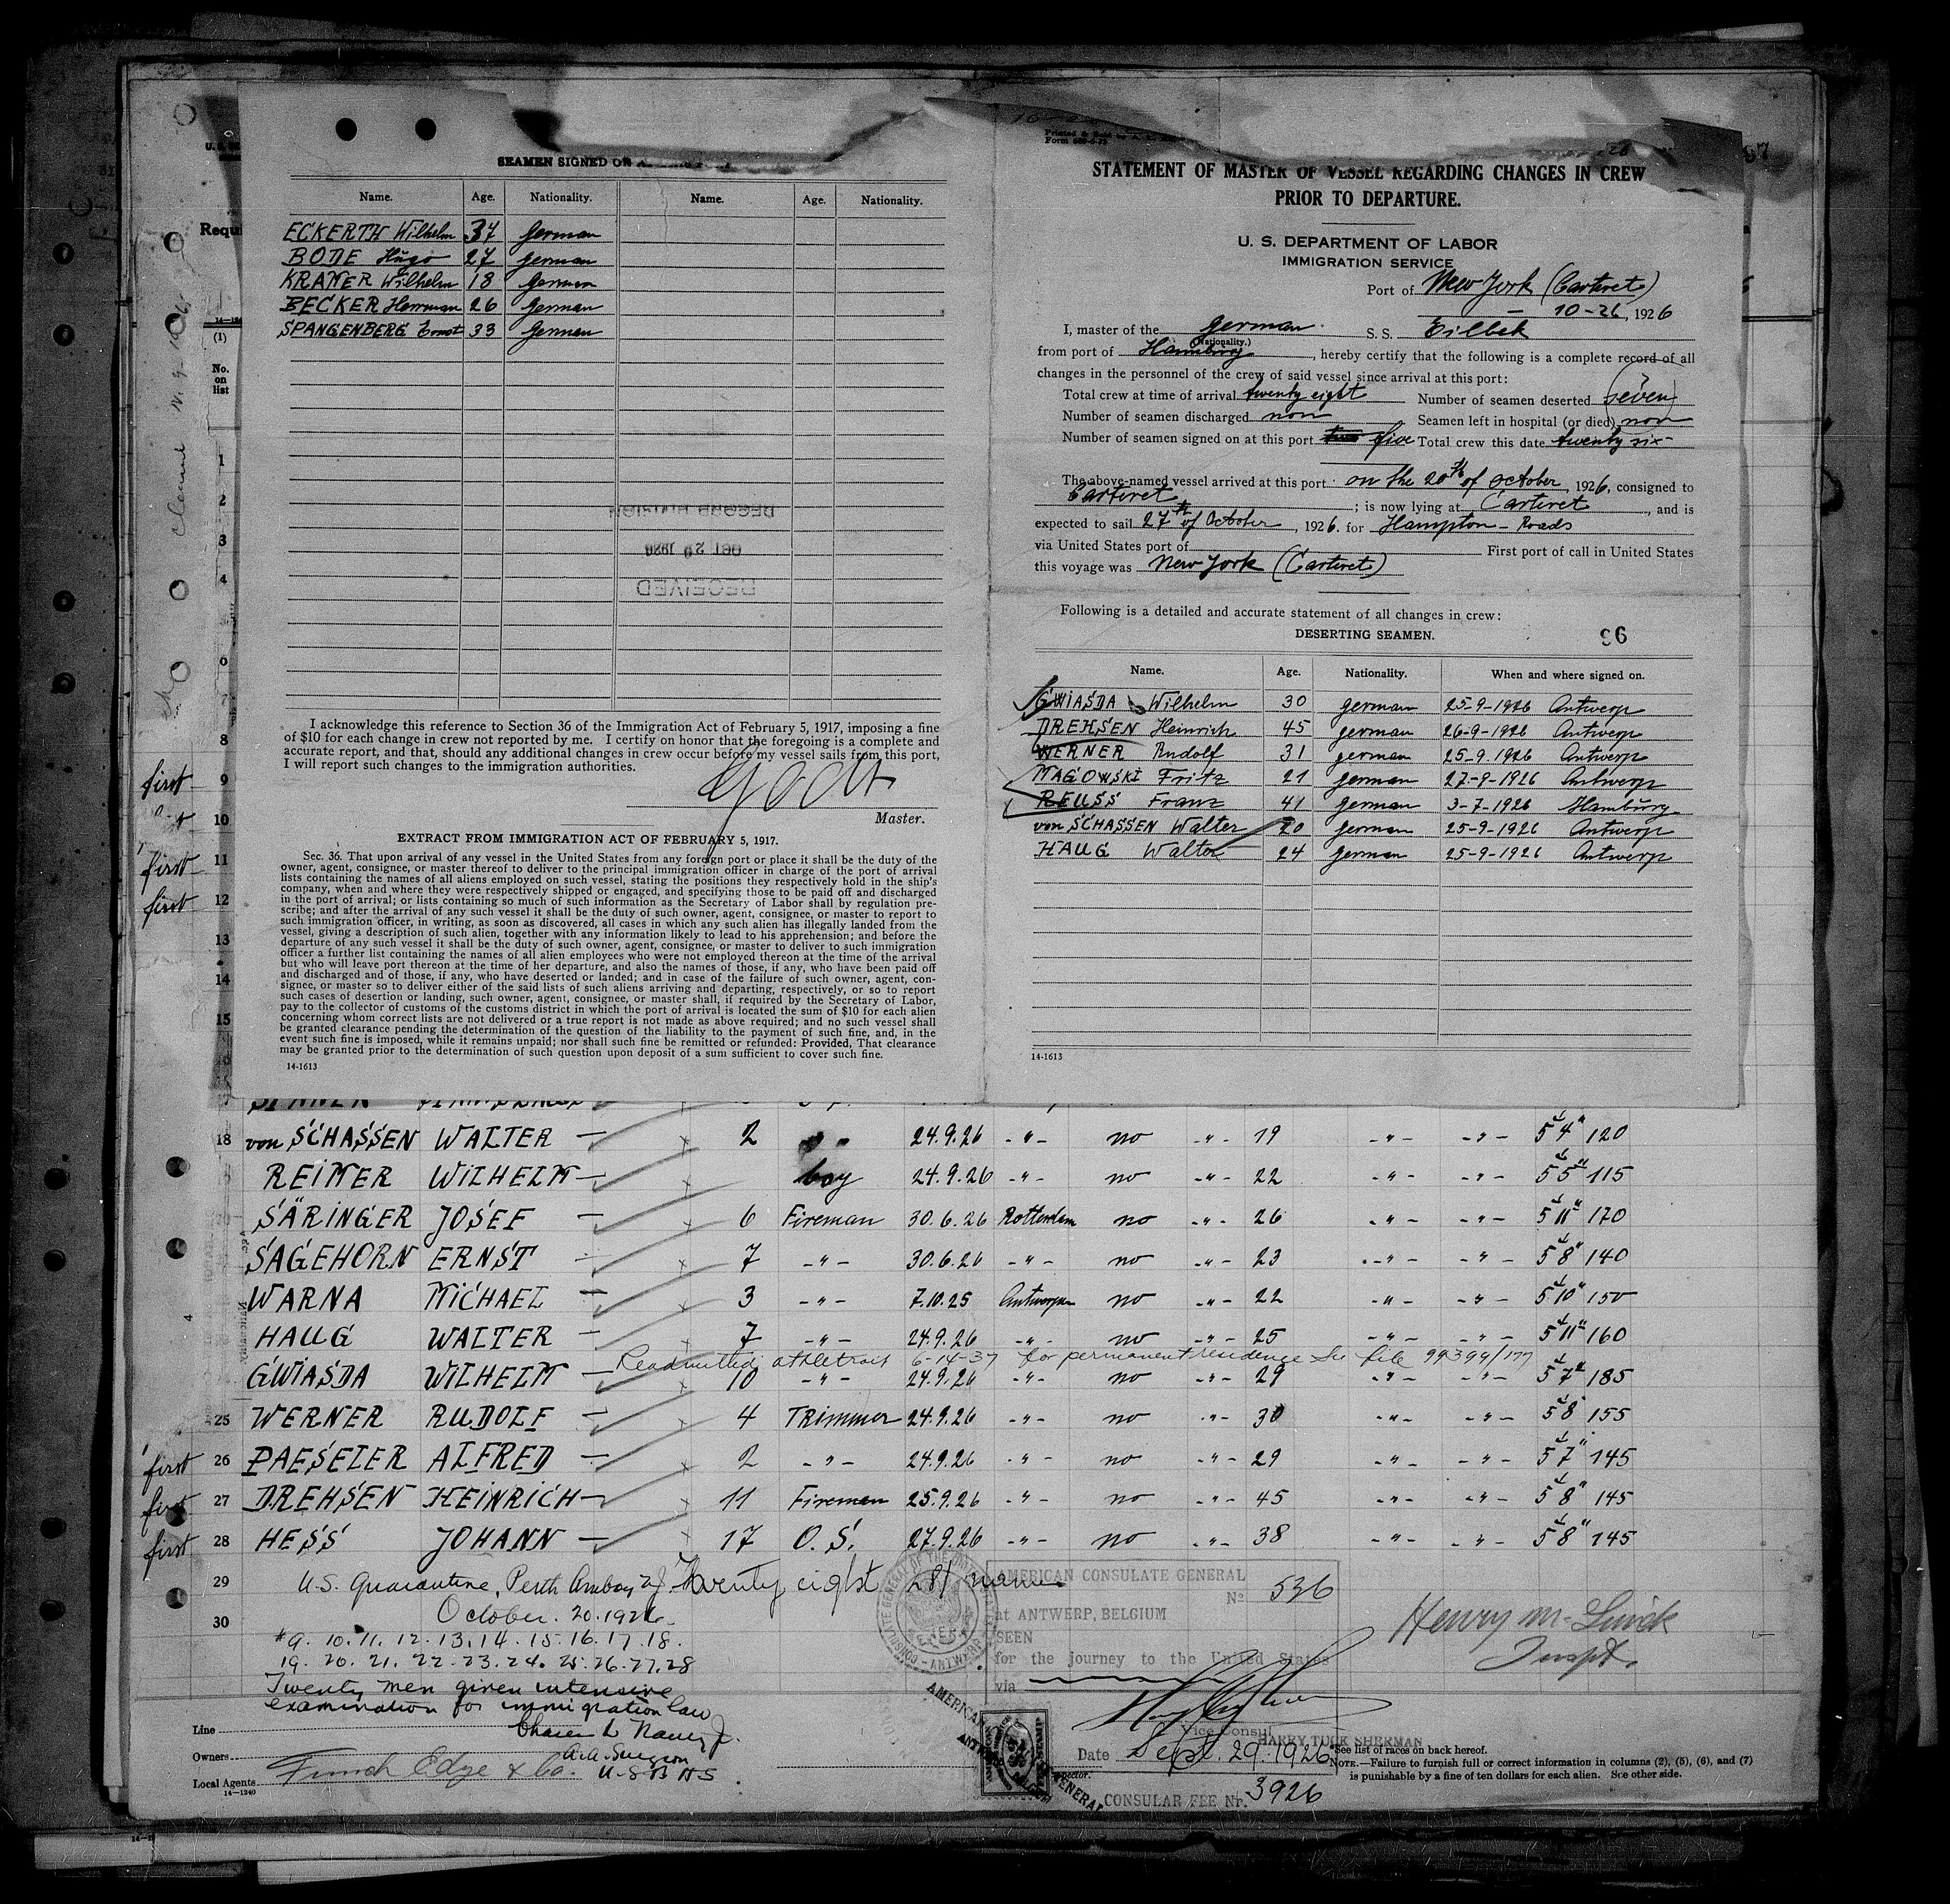 SEAMEN SIGNED ON
Name. Age. Nationality. Name. Age. Nationality.
ECKERTH Wilhelm 37 german
BODE Hugo 27 german
KRAMER Wilhelm 18 german
BECKER Herrman 26 german
SPANGENBERG Ernst 33 german
RECORD DIVISION
OCT 29 1926
RECEIVED
I acknowledge this reference to Section 36 of the Immigration Act of February 5, 1917, imposing a fine
of $10 for each change in crew not reported by me. I certify on honor that the foregoing is a complete and
accurate report, and that, should any additional changes in crew occur before my vessel sails from this port,
I will report such changes to the immigration authorities.
Master.
EXTRACT FROM IMMIGRATION ACT OF FEBRUARY 5, 1917.
Sec. 36. That upon arrival of any vessel in the United States from any foreign port or place it shall be the duty of the
owner, agent, consignee, or master thereof to deliver to the principal immigration officer in charge of the port of arrival
lists containing the names of all aliens employed on such vessel, stating the positions they respectively hold in the ship's
company, when and where they were respectively shipped or engaged, and specifying those to be paid off and discharged
in the port of arrival; or lists containing so much of such information as the Secretary of Labor shall by regulation pre-
scribe; and after the arrival of any such vessel it shall be the duty of such owner, agent, consignee, or master to report to
such immigration officer, in writing, as soon as discovered, all cases in which any such alien has illegally landed from the
vessel, giving a description of such alien, together with any information likely to lead to his apprehension; and before the
departure of any such vessel it shall be the duty of such owner, agent, consignee, or master to deliver to such immigration
officer a further list containing the names of all alien employees who were not employed thereon at the time of the arrival
but who will leave port thereon at the time of her departure, and also the names of those, if any, who have been paid off
and discharged and of those, if any, who have deserted or landed; and in case of the failure of such owner, agent, con-
signee, or master so to deliver either of the said lists of such aliens arriving and departing, respectively, or so to report
such cases of desertion or landing, such owner, agent, consignee, or master shall, if required by the Secretary of Labor,
pay to the collector of customs of the customs district in which the port of arrival is located the sum of $10 for each alien
concerning whom correct lists are not delivered or a true report is not made as above required; and no such vessel shall
be granted clearance pending the determination of the question of the liability to the payment of such fine, and, in the
event such fine is imposed, while it remains unpaid; nor shall such fine be remitted or refunded: Provided, That clearance
may be granted prior to the determination of such question upon deposit of a sum sufficient to cover such fine.
14-1613
STATEMENT OF MASTER OF VESSEL REGARDING CHANGES IN CREW
PRIOR TO DEPARTURE.
U. S. DEPARTMENT OF LABOR
IMMIGRATION SERVICE
Port of New York (Carteret)
10-26, 1926
I, master of the german S. S. Eilbek
(Nationality.)
from port of Hamburg, hereby certify that the following is a complete record of all
changes in the personnel of the crew of said vessel since arrival at this port:
Total crew at time of arrival twenty eight Number of seamen deserted (seven)
Number of seamen discharged non Seamen left in hospital (or died) non
Number of seamen signed on at this port five Total crew this date twenty six
The above-named vessel arrived at this port on the 20th of october, 1926, consigned to
Carteret; is now lying at Carteret, and is
expected to sail 27th of October, 1926. for Hampton-Roads
via United States port of First port of call in United States
this voyage was New York (Carteret)
Following is a detailed and accurate statement of all changes in crew:
DESERTING SEAMEN. 96
Name. Age. Nationality. When and where signed on.
GWIASDA Wilhelm 30 german 25-9-1926 Antwerp
DREHSEN Heinrich 45 german 26-9-1926 Antwerp
WERNER Rudolf 31 german 25-9-1926 Antwerp
MAGOWSKI Fritz 21 german 27-9-1926 Antwerp
REUSS Franz 41 german 3-7-1926 Hamburg
von SCHASSEN Walter 20 german 25-9-1926 Antwerp
HAUG Walter 24 german 25-9-1926 Antwerp
14-1613
Requi
(1)
No.
on
list
1
2
3
4
7
8
first 9
10
first 11
first 12
13
14
15
18 von SCHASSEN WALTER 2 24.9.26 -"- no -"- 19 -"- -"- 5'4" 120
REIMER WILHELM boy 24.9.26 -"- no -"- 22 -"- -"- 5'5" 115
SÄRINGER JOSEF 6 Fireman 30.6.26 Rotterdam no -"- 26 -"- -"- 5'11" 170
SAGEHORN ERNST 7 -"- 30.6.26 -"- no -"- 23 -"- -"- 5'8" 140
WARNA MICHAEL 3 -"- 7.10.25 Antwerpen no -"- 22 -"- -"- 5'10" 150
HAUG WALTER 7 -"- 24.9.26 -"- no -"- 25 -"- -"- 5'11" 160
Readmitted at Detroit 6-14-37 for permanent residence See file 99399/177
GWIASDA WILHELM 10 -"- 24.9.26 -"- no -"- 29 -"- -"- 5'7" 185
25 WERNER RUDOLF 4 Trimmer 24.9.26 -"- no -"- 30 -"- -"- 5'8 155
first 26 PAESELER ALFRED 2 -"- 24.9.26 -"- no -"- 29 -"- -"- 5'7" 145
first 27 DREHSEN HEINRICH 11 Fireman 25.9.26 -"- no -"- 45 -"- -"- 5'8" 145
first 28 HESS JOHANN 17 O.S. 27.9.26 -"- no -"- 38 -"- -"- 5'8" 145
29 U.S. Quarantine, Perth Amboy NJ Twenty eight 28/ names
30 October. 20. 1926
#9. 10. 11. 12. 13. 14. 15. 16. 17. 18.
19. 20. 21. 22. 23. 24. 25. 26. 27. 28
Twenty men given intensive
examination for immigration law
A.A. Surgeon
U.S.P.H.S.
Line
Owners
Local Agents Funch Edye & Co.
14-1240
AMERICAN CONSULATE GENERAL
No 536
at ANTWERP, BELGIUM
SEEN
for the journey to the United States
via
Vice Consul
HARRY TUCK SHERMAN
Date Sept. 29. 1926
CONSULAR FEE Nr. 3926
Inspt.
See list of races on back hereof.
NOTE.—Failure to furnish full or correct information in columns (2), (5), (6), and (7)
is punishable by a fine of ten dollars for each alien. See other side.